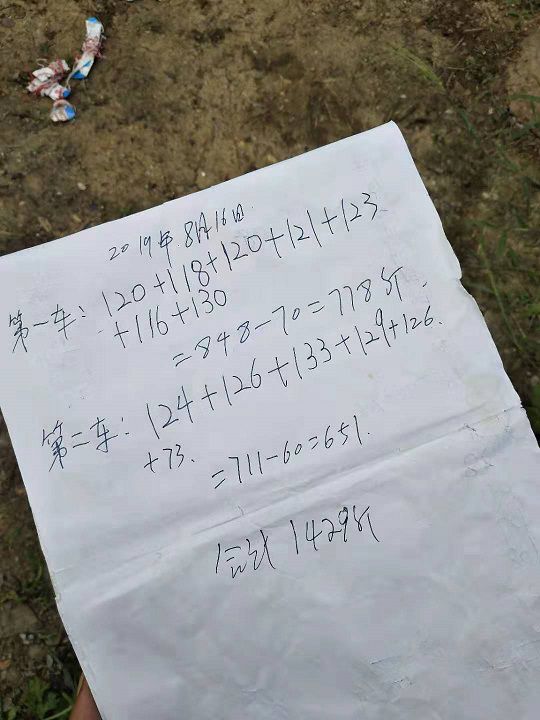 2019年8月16日
第一车：120+118+120+121+123
+116+130
=848-70=778斤.
第二车：124+126+133+129+126.
+73.
=711-60=651.
合计 1429斤